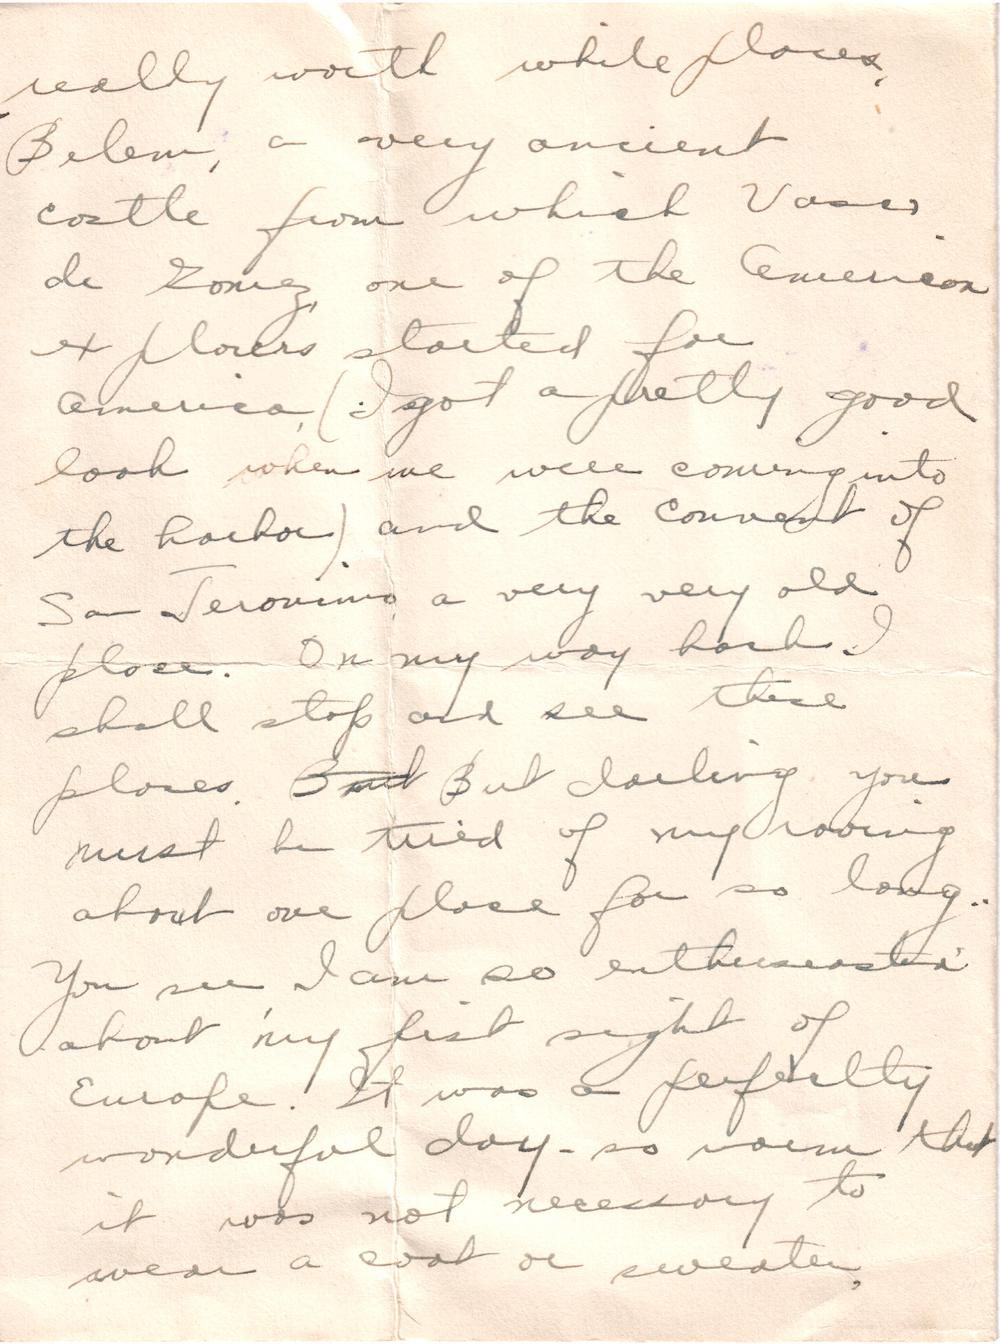 really worth while places,
Belem, a very ancient
castle from which Vasco
de Gomez, one of the American
explorers started for
America, (I got a pretty good
look when we were coming into
the harbor) and the Convent of
San Jeronimo, a very very old
place. On my way back I
shall stop and see these
places. But But darling you
must be tired of my roving
about one place for so long..
You see I am so enthusiastic
about my first sight of
Europe. It was a perfectly
wonderful day - so warm that
it was not necessary to
wear a coat or sweater,